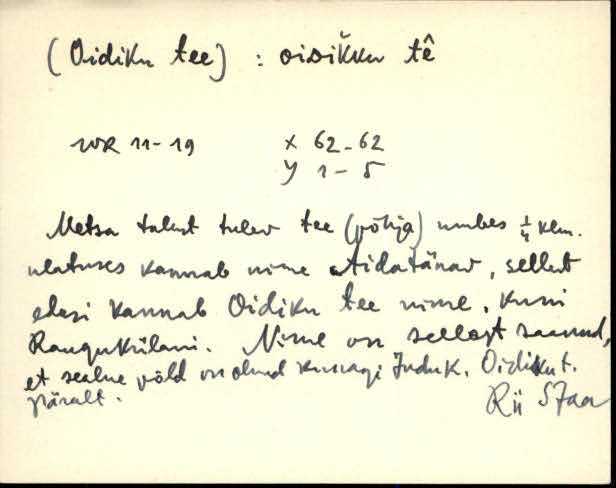 (Oidiku tee) : oiDiǨku tê
WR 11-19 X 62-62
Y 1-5
Metsa talust tulev tee (põhja) umbes ¼ klm.
ulatuses kannab nime Aidatänav, sellest
edasi kannab Oidiku tee nime, kuni
Ranguküлani. Nime on sellest saanud,
et sealne põld on olnud kunagi Juduk. Oidiku t.
päralt.
Rii